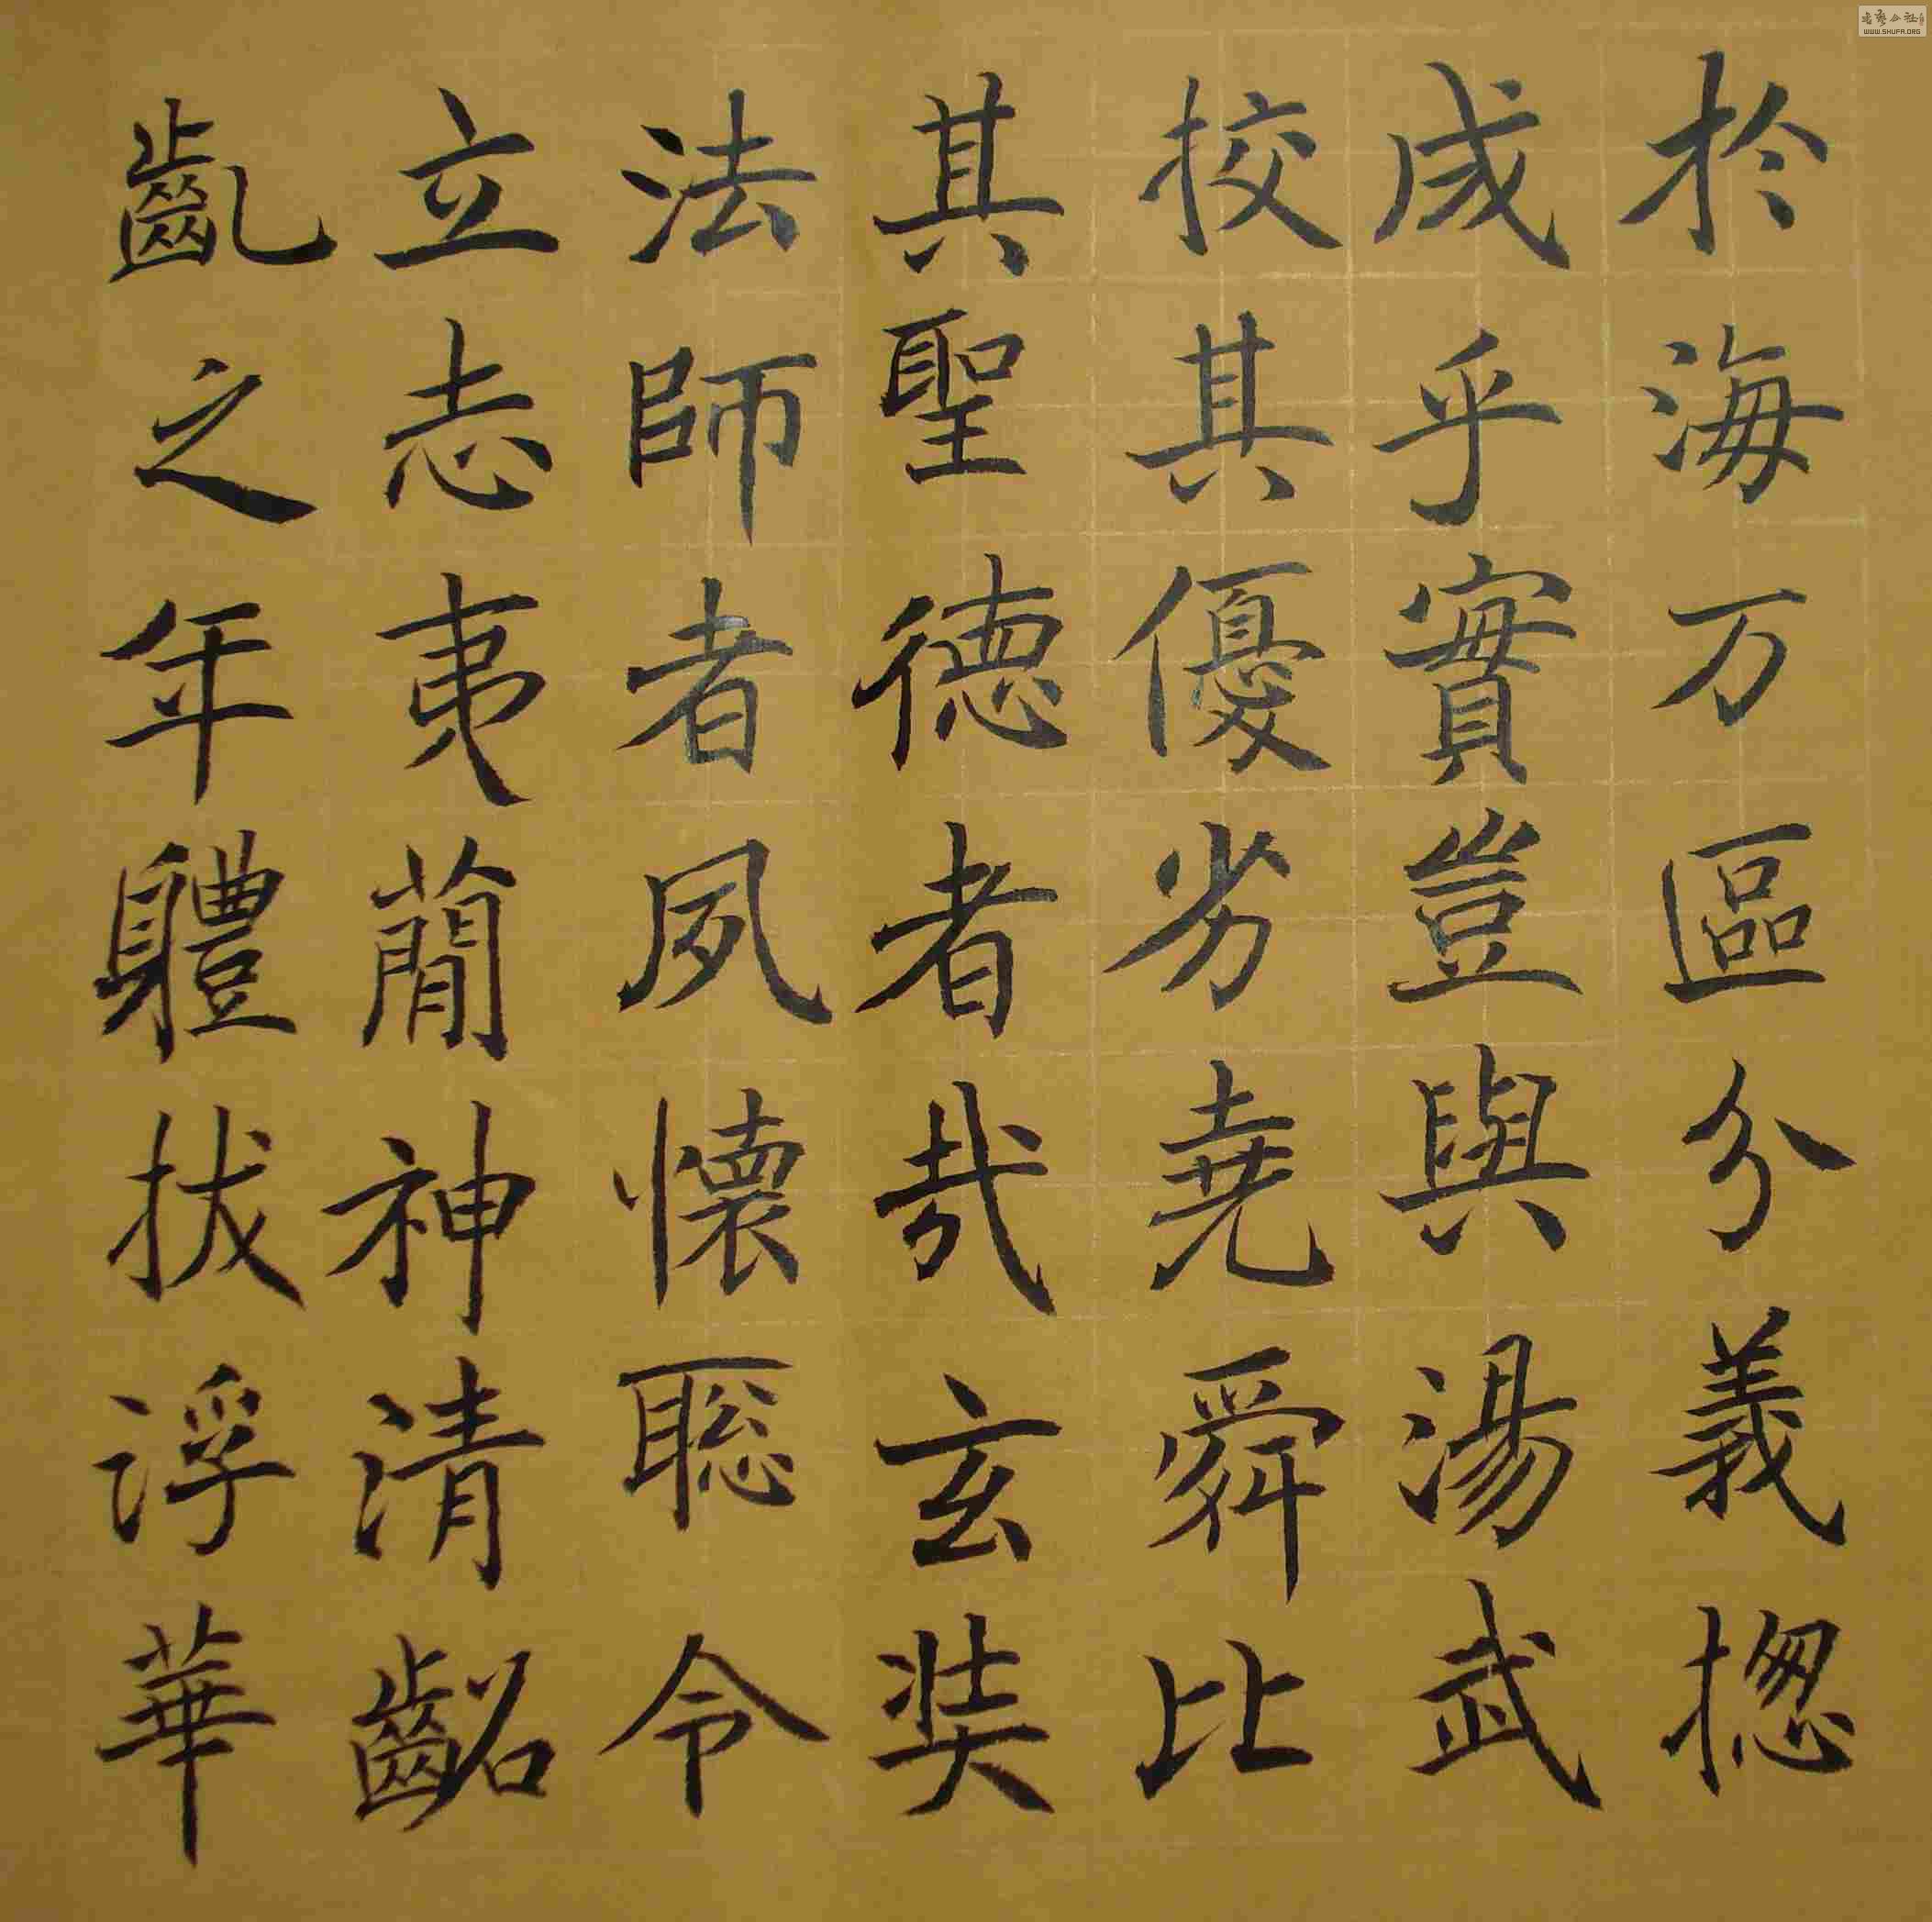 於海万區分義揔
成乎實豈與湯武
挍其優劣堯舜比
其聖德者哉玄奘
法師者夙懷聡令
立志夷蕳神清齠
齓之年軆拔浮華
WWW.SHUFA.ORG